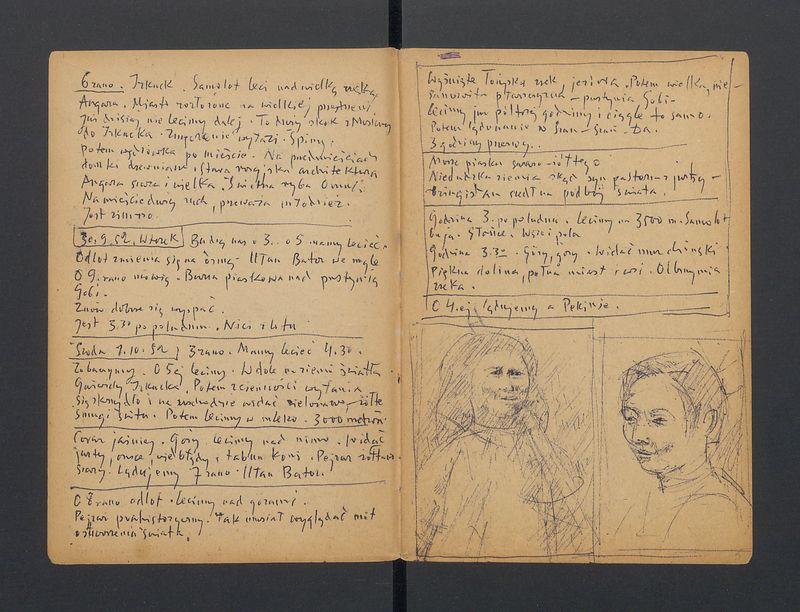 6 rano. Irkuck. Samolot leci nad wielką rzeką
Angara. Miasto rozłożone na wielkiej przestrzeni
Już dzisiaj nie lecimy dalej. To duży skok z Moskwy
do Irkucka. Zmęczenie wyłazi. Śpimy.
potem wędrówka po mieście. Na przedmieściach
domki drewniane, stara rosyjska architektura
Angara szara i wielka. Świetna ryba
Na mieście duży ruch, przeważa młodzież.
Jest zimno.
30.9.52. Wtorek Budzą nas o 3. o 5 mamy lecieć.
Odlot zmienia się na ósmą. Ułan Bator we mgle
O 9. rano mówią. Burza piaskowa nad pustynią
Gobi.
Znów dobrze się wyspać.
Jest 3.30 po południu. Nici z lotu
Środa 1.10.52 3 rano. Mamy lecieć 4.30.
Zobaczymy. O 5ej lecimy. W dole na ziemi światła
Gwiazdy Irkucka. Potem z ciemności wyłania
się skrzydło i na wschodzie widać zielonawo-żółte
smugi świtu. Potem lecimy w mleko. 3000 metrów
Coraz jaśniej. Góry lecimy nad nimi. Widać
jurty, owce, wielbłądy, tabun koni. Pejzaż żółto-
szary. Lądujemy 7 rano. Ułan Bator.
O 8 rano odlot. Lecimy nad górami.
Pejzaż prehistoryczny. Tak musiał wyglądać mit
o stworzeniu świata.
rzek jeziora. Potem wielka, nie-
samowita płaszczyzna – pustynia Gobi.
Lecimy już półtorej godziny i ciągle to samo.
Potem lądowanie w
3 godziny przerwy..
Morze piasku szaro-żółtego
Nieludzka ziemia skąd syn pasterza z jurty –
Dżingischan szedł na podbój świata.
Godzina 3. po południu. Lecimy na 3500 m. Samolot
buja. Słońce. pola
Godzina 3.30. Góry, góry. Widać mur chiński
Piękna dolina, pełna miast i wsi. Olbrzymia
rzeka.
O 4.ej lądujemy w Pekinie.